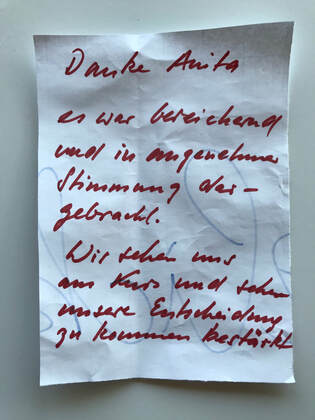 Danke Anita
es war bereichernd
und in angenehmer
Stimmung dar-
gebracht.
Wir sehen uns
am Kurs und sehen
unsere Entscheidung
zu kommen bestärkt